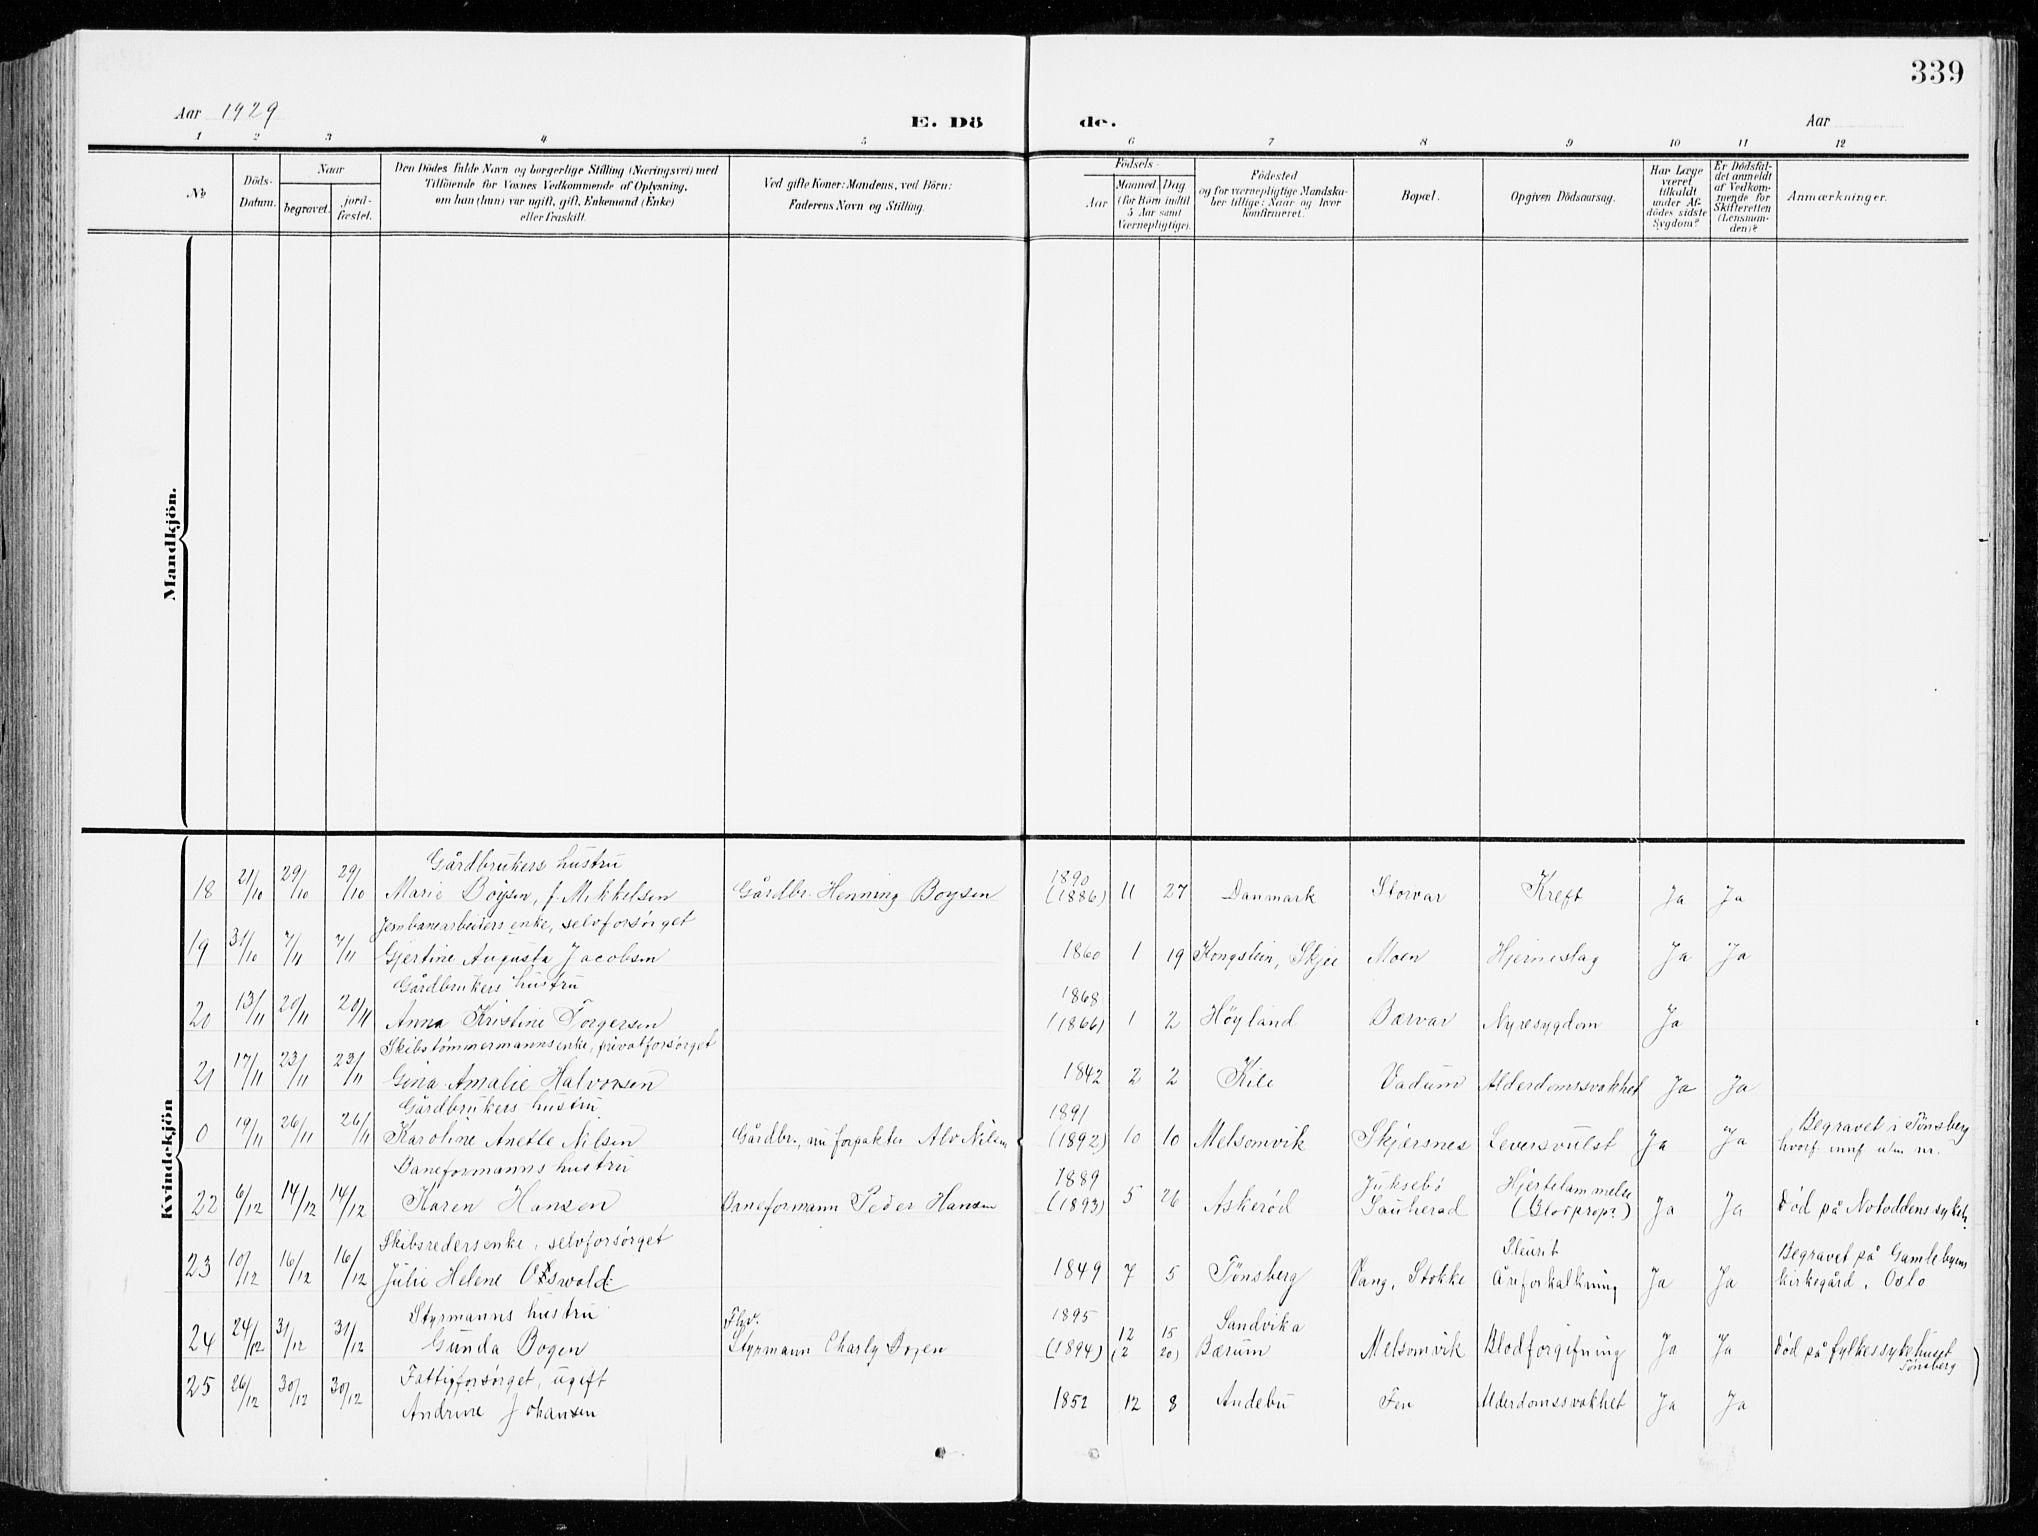 339
Aar 1929
E. Dö de.
Aar
1 2 3 4 5 6 7 8 9 10 11 12
No
Döds-Datum.
Naar
begravet.
jord-fæstet.
Den Dödes fulde Navn og borgerlige Stilling (Næringsvei) med
Tilföiende for Voxnes Vedkommende af Oplysning,
om han (hun) var ugift, gift, Enkemand (Enke)
eller fraskilt.
Ved gifte Koner: Mandens, ved Börn:
Faderens Navn og Stilling.
Födsels-
Aar
Maaned Dag
(for Börn indtil
5 Aar samt
Værnepligtige).
Födested
og for værnepligtige Mandska-
ber tillige: Naar og hvor
konfirmeret.
Bopæl.
Opgiven Dödsaarsag.
Har Læge
været
tilkaldt
under Af-
dödes sidste
Sygdom?
Er Dödsfal-
det anmeldt
af Vedkom-
mende for
Skifteretten
(Lensman-
den)?
Anmærkninger.
Mandkjön.
Kvindekjön
Gårdbrukers hustru
18 21/10 29/10 29/10 Marie Boysen, f. Mikkelsen Gårdbr. Henning Boysen 1890 (1886) 11 27 Danmark Storvar Kreft Ja Ja
Jernbanearbeiders enke, selvforsørget
19 31/10 7/11 7/11 Gjertine Augusta Jacobsen 1860 1 19 Kongstein, Skjee Moen Hjerneslag Ja Ja
Gårdbrukers hustru
20 13/11 20/11 20/11 Anna Kristine Torgersen 1868 (1866) 1 2 Höyland Bærvar Nyresygdom Ja
Skibstømmermannsenke, privatforsørget
21 17/11 23/11 23/11 Gina Amalie Halvorsen 1842 2 2 Kile Vadum Alderdomssvakhet Ja Ja
Gårdbrukers hustru
0 19/11 26/11 26/11 Karoline Anette Nilsen Gårdbr., nu forpakter Alv Nilsen 1891 (1892) 10 10 Melsomvik Skjersnes Leversvulst Ja Ja Begravet i Tönsberg
hvorf. innf uten nr.
Baneformanns hustru
22 6/12 14/12 14/12 Karen Hansen Baneformann Peder Hansen 1889 (1893) 5 26 Askerød Juksebö Sauherad Hjertelammelse (Blodpropr) Ja Ja Död på Notoddens sykeh.
Skibsredersenke, selvforsørget
23 10/12 16/12 16/12 Julie Helene Osswald 1849 7 5 Tönsberg Vang, Stokke Pleurit Åreforkalkning Ja Ja Begravet på Gamlebyens
kirkegård, Oslo
Styrmanns hustru
24 24/12 31/12 31/12 Gunda Bogen Fhv. Styrmann Charly Bogen 1895 (1894) 12 15 (2 20) Sandvika Bærum Melsomvik Blodforgifning Ja Ja Död på fylkessykehuset
Tönsberg
Fattigforsørget, ugift
25 26/12 30/12 30/12 Andrine Johansen 1852 12 8 Andebu Fen Alderdomssvakhet Ja Ja